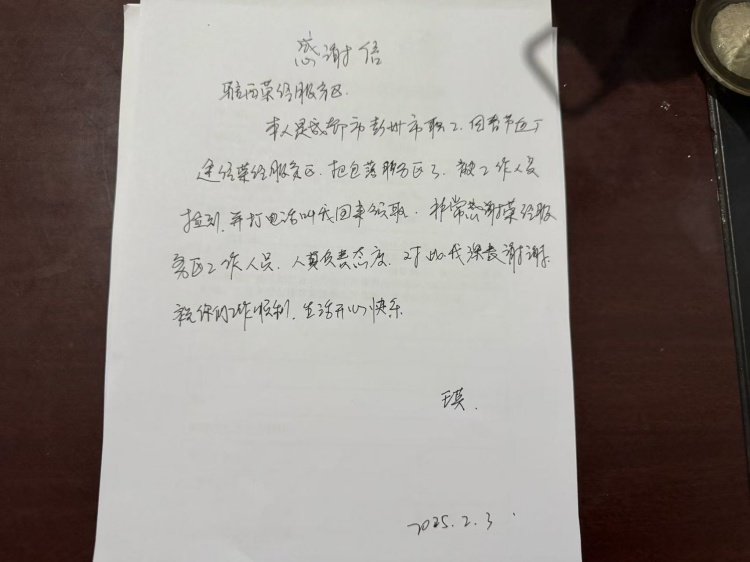 感谢信
雅西荥经服务区.
本人是成都市彭州市职工.因春节返工
途经荥经服务区.把包落服务区了,被工作人员
捡到,并打电话叫我回来领取.非常感谢荥经服
务区工作人员,认真负责态度,对此我深表谢谢.
祝你们工作顺利,生活开心快乐.
王琪.
2025.2.3.